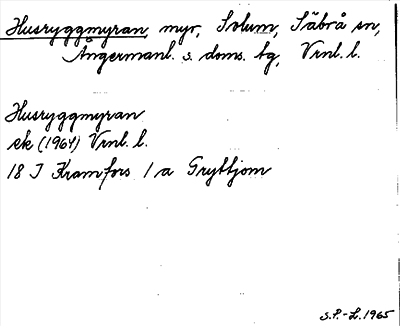 Husryggmyran, myr, Solum, Säbrå sn,
Ångermanl. s. doms. tg, Vrnl. l.
Husryggmyran
ek (1964) Vrnl. l.
18 I Kramfors 1 a Gryttjom
S.P.-L. 1965